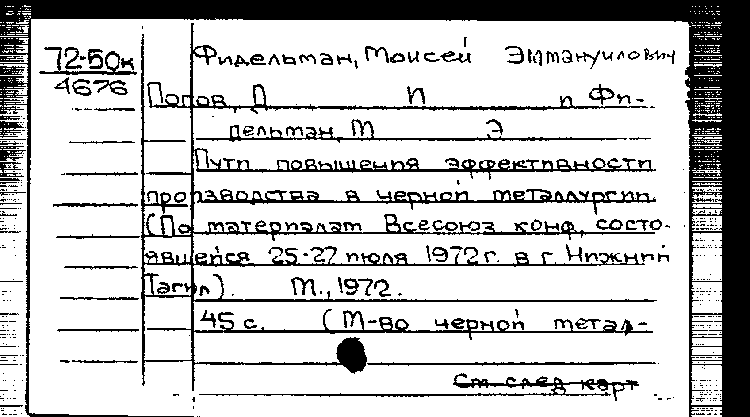 72-50к
4676
Фидельман, Моисей Эммануилович
Попов, Д П и Фи-
дельман, М Э
Пути повышения эффективности
производства в черной металлургии.
(По материалам Всесоюз конф, состо-
явшейся 25-27 июля 1972 г. в г. Нижний
Тагил). М., 1972.
45 с. (М-во черной метал-
См след карт